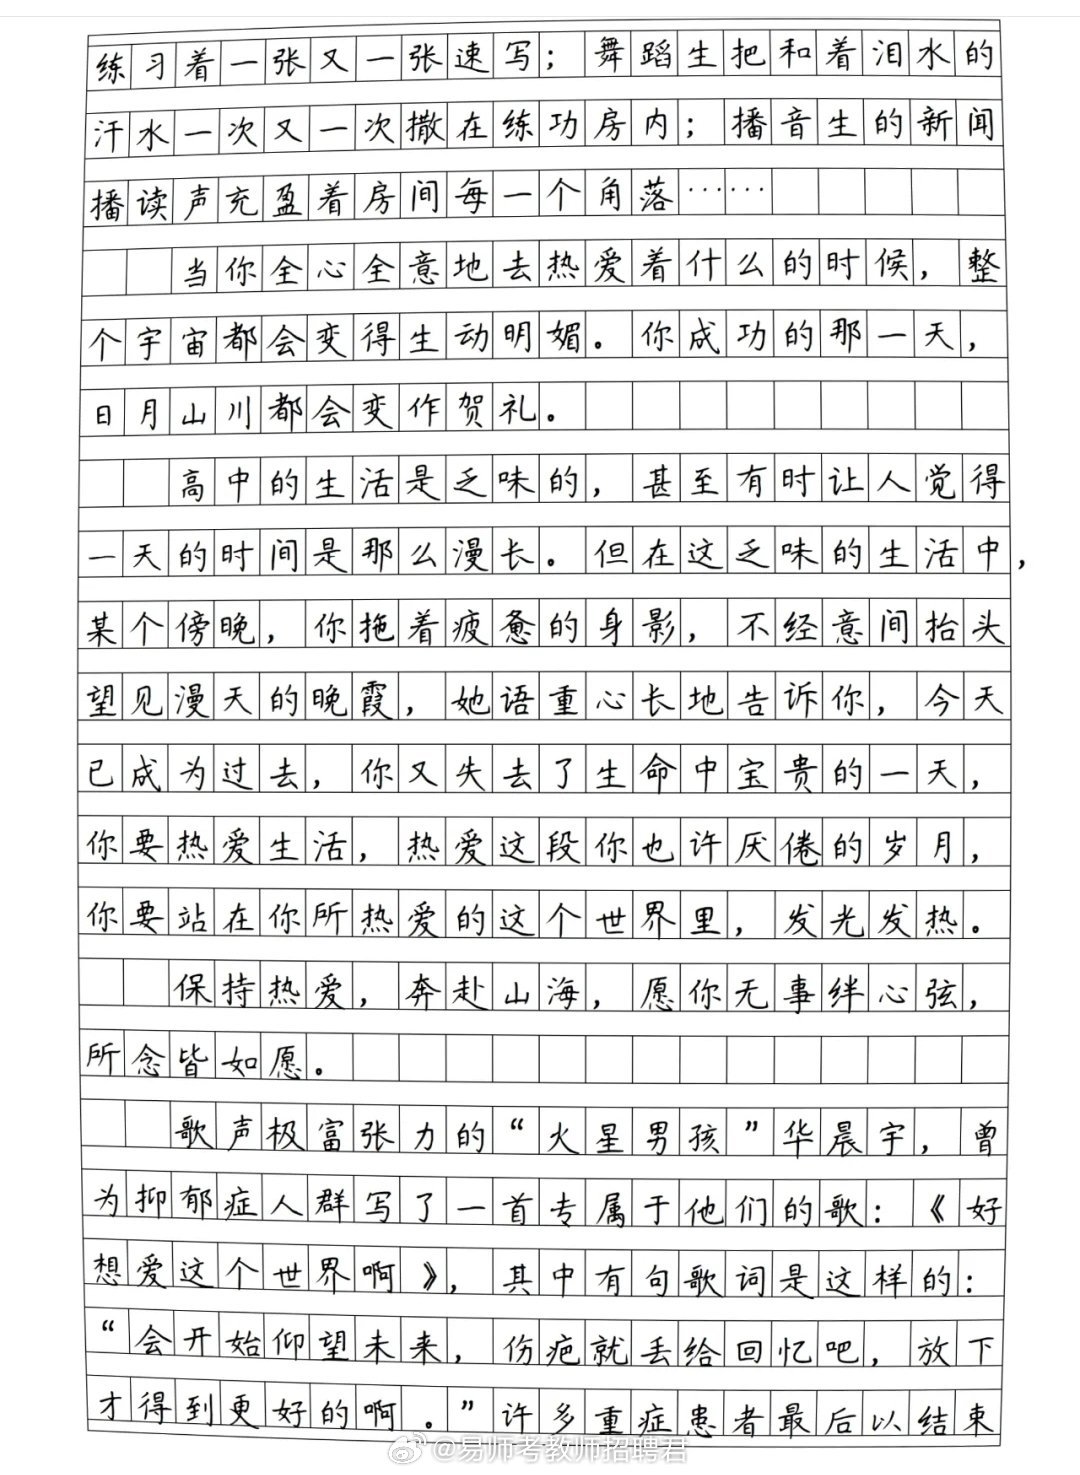 练习着一张又一张速写；舞蹈生把和着泪水的
汗水一次又一次撒在练功房内；播音生的新闻
播读声充盈着房间每一个角落……
当你全心全意地去热爱着什么的时候，整
个宇宙都会变得生动明媚。你成功的那一天，
日月山川都会变作贺礼。
高中的生活是乏味的，甚至有时让人觉得
一天的时间是那么漫长。但在这乏味的生活中，
某个傍晚，你拖着疲惫的身影，不经意间抬头
望见漫天的晚霞，她语重心长地告诉你，今天
已成为过去，你又失去了生命中宝贵的一天，
你要热爱生活，热爱这段你也许厌倦的岁月，
你要站在你所热爱的这个世界里，发光发热。
保持热爱，奔赴山海，愿你无事绊心弦，
所念皆如愿。
歌声极富张力的“火星男孩”华晨宇，曾
为抑郁症人群写了一首专属于他们的歌：《好
想爱这个世界啊》，其中有句歌词是这样的：
“会开始仰望未来，伤疤就丢给回忆吧，放下
才得到更好的啊。”许多重症患者最后以结束
@易师考教师招聘君